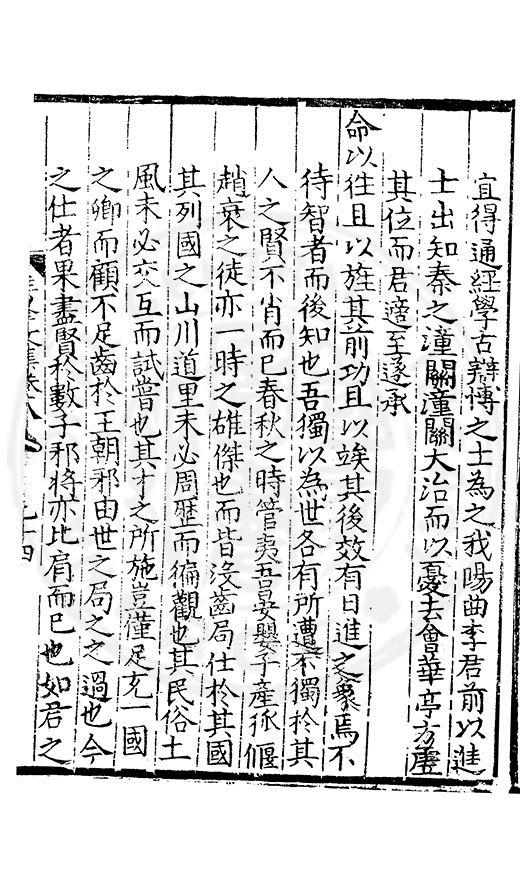 宜得通經學古辯博之士為之我陽曲李君前以進
士出知秦之潼關潼關大治而以憂去會華亭方虛
其位而君適至遂承
命以往且以旌其前功且以竢其後效有日進之衆焉不
待智者而後知也吾獨以為世各有所遭不獨於其
人之賢不肖而已春秋之時管夷吾晏嬰子產孫偃
趙衰之徒亦一時之雄傑也而皆沒齒局仕於其國
其列國之山川道里未必周歷而徧觀也其民俗土
風未必交互而試嘗也其才之所施豈僅足充一國
之卿而顧不足齒於王朝邪由世之局之之過也今
之仕者果盡賢於數子邪將亦比肩而已也如君之
文集卷八